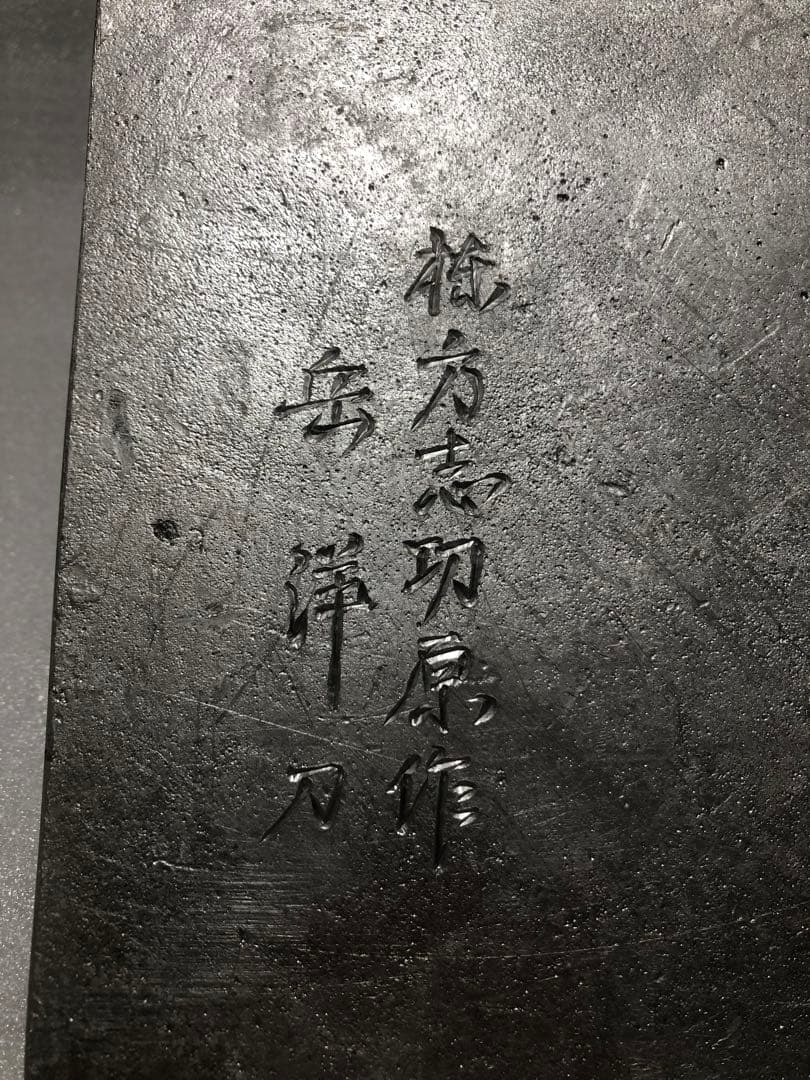 棟方志功原作
岳洋刀